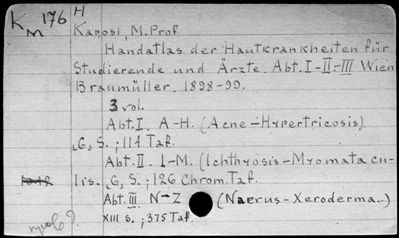 K M 176 H
Kaposi, M. Prof
Handatlas der Hautkrankheiten für
Studierende und Ärzte. Abt. I-II-III Wien
Braumüller. 1898-99.
3 vol.
Abt. I. A-H. (Acne-Hypertricosis)
,6, S. ; 114 Taf.
Abt. II. I-M. (Ichthyosis-Myomata cu-
lis. ,6, S. ; 126 Chrom. Taf.
Abt. III. N-Z (Naevus-Xeroderma..)
XIII S. ; 375 Taf.